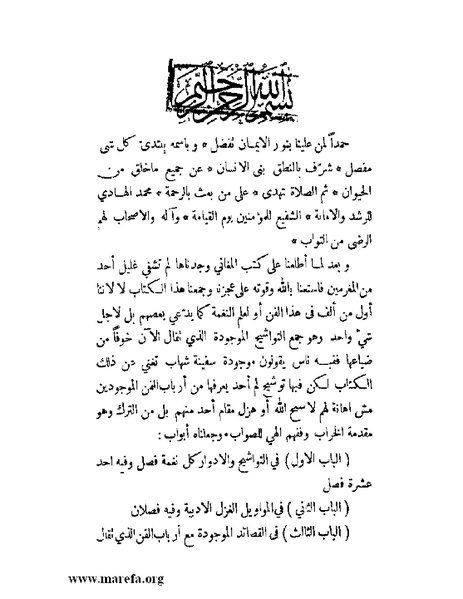 بسم الله الرحمن الرحيم
حمداً لمن علينا بنور الايمان تفضل * و باسمه يبتدئ كل شئ
مفصل * شرف بالنطق بنى الانسان * عن جميع ماخلق من
الحيوان * ثم الصلاة تهدى * على من بعث بالرحمة * محمد الهادي
للرشد والامانة * الشفيع للمؤمنين يوم القيامة * وآله والاصحاب لهم
الرضى من التواب *
و بعد لما أطلعنا على كتب المغاني وجدناها لم تشفي غليل أحد
من المغرمين فاستعنا بالله وقوته على عجزنا وجمعنا هذا الكتاب لا لاننا
أول من ألف في هذا الفن أو لعلم النغمة كما يدعي بعضهم بل لاجل
شئ واحد وهو جمع التواشيح الموجودة الذي تقال الآن خوفاً من
ضياعها ففيه ناس يقولون موجودة سفينة شهاب تغني عن ذلك
الكتاب لكن فيها توشيح لم أحد يعرفها من أرباب الفن الموجودين
مش اهانة لهم لا سمح الله أو هزل مقام أحد منهم بل من الترك وهو
مقدمة الخراب وفقهم الهي للصواب * وجعلناه أبواب :
( الباب الاول ) في التواشيح والادوار كل نغمة فصل وفيه احد
عشرة فصل
( الباب الثاني ) في المواويل الغزل الادبية وفيه فصلان
( الباب الثالث ) في القصائد الموجودة مع أرباب الفن الذي تقال
www.marefa.org